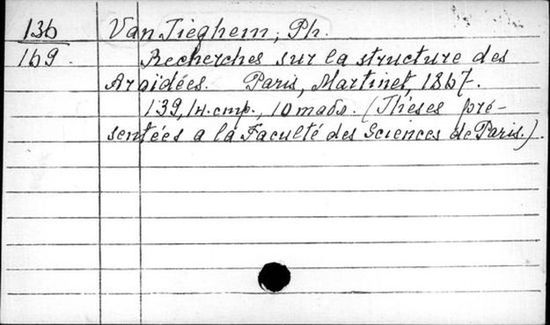 136 Van Tieghem, Ph.
169. Recherches sur la structure des
Aroïdées. Paris, Martinet, 1867.
139, 1 н. стр., 10 табл. (Thèses pré-
sentées a la Faculté des Sciences de Paris.)